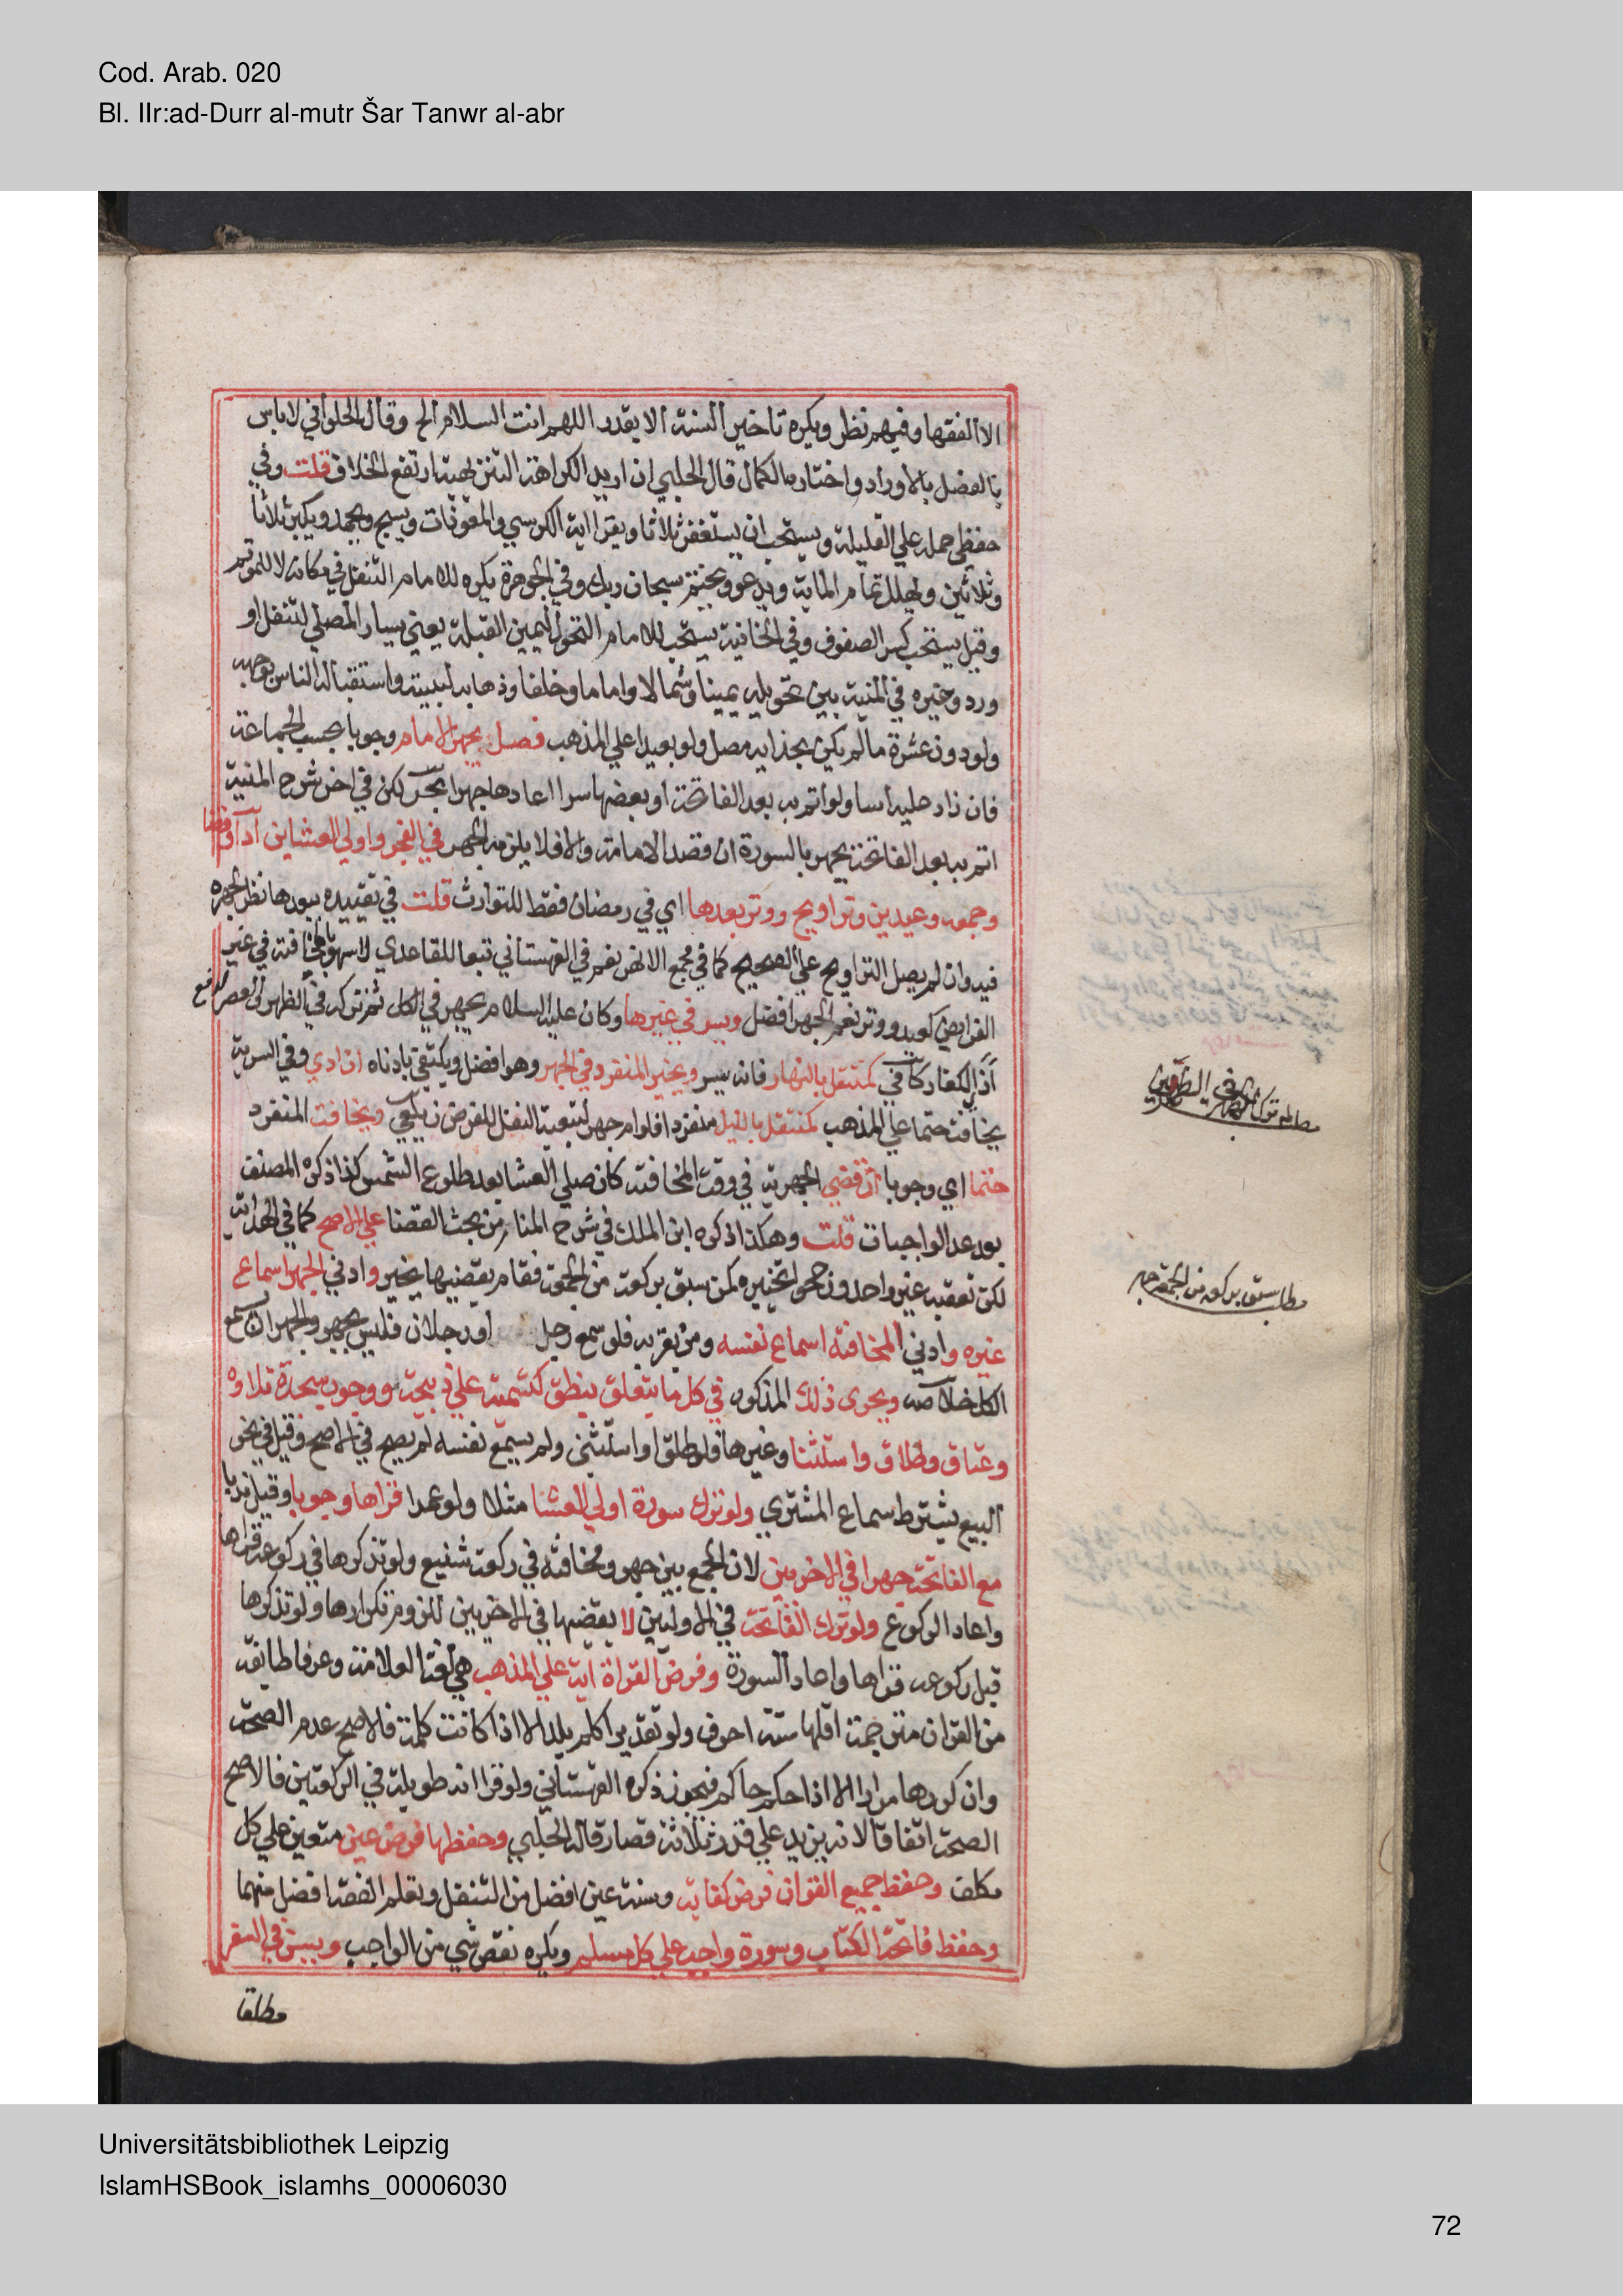 Cod. Arab. 020
Bl. IIr:ad-Durr al-mutr Šar Tanwr al-abr
الا الفقها وفيهم نظر ويكره تاخير السنة الا بقدر اللهم انت السلام الخ وقال الحلواني لا باس
بالفصل بالاوراد واختاره الكمال قال الحلبي ان اريد بالكراهة التنزيهية ارتفع الخلاف قلت وفي
حفظي حمله علي القليلة ويستحب ان يستغفر ثلاثا ويقرا اية الكرسي والمعوذات ويسبح ويحمد ويكبر ثلاثا
وثلاثين ويهلل تمام الماية ويدعو ويختم بسبحان ربك وفي الجوهرة يكره للامام التنفل في مكانه لا للموتم
وقيل يستحب كسر الصفوف وفي الخانية يستحب للامام التحول ليمين القبلة يعني يسار المصلي لتنفل او
ورد وخيره في المنية بين تحويله يمينا وشمالا واماما وخلفا وذهابه لبيته واستقباله الناس بوجهه
ولو دون عشرة ما لم يكن بحذايه مصل ولو بعيدا علي المذهب فصل يجهر الامام وجوبا بحسب الجماعة
فان زاد عليه اسا ولو اتم به بعد الفاتحة او بعضها سرا اعادها جهرا بحر لكن في اخر شرح المنية
اتم به بعد الفاتحة يجهر بالسورة ان قصد الامامة والا فلا يلزمه الجهر في الفجر واولي العشاين ادا وقضا
وجمعه وعيدين وتراويح ووتر بعدها اي في رمضان فقط للتوارث قلت في تقييده ببعدها نظر لجهره
فيه وان لم يصل التراويح علي الصحيح كما في مجمع الانهر نعم في القهستاني تبعا للقاعدي لا سهو بالمخافتة في غير
الفرايض كعيد ووتر نعم الجهر افضل ويسر في غيرها وكان عليه السلام يجهر في الكل ثم تركه في الظهر والعصر لدفع
اذي الكفار كافي كمتنفل بالنهار فانه يسر ويخير المنفرد في الجهر وهو افضل ويكتفي بادناه ان ادي وفي السرية
يخافت حتما علي المذهب كمتنفل بالليل منفردا فلو ام جهر لتبعية النفل للفرض زيلعي ويخافت المنفرد
حتما اي وجوبا ان قضي الجهرية في وقت المخافتة كان صلي العشا بعد طلوع الشمس كذا ذكره المصنف
بعد عد الواجبات قلت وهكذا ذكره ابن الملك في شرح المنار من بحث القضا علي الاصح كما في الهداية
لكن تعقبه غير واحد ورجحوا تخييره كمن سبق بركعة من الجمعة فقام يقضيها يخير وادني الجهر اسماع
غيره وادني المخافتة اسماع نفسه ومن بقربه فلو سمع رجل او رجلان فليس بجهر والجهر ان يسمع
الكل خلاصه ويجري ذلك المذكور في كل ما يتعلق بنطق كتسمية علي ذبيحة ووجوب سجدة تلاوه
وعتاق وطلاق واستثنا وغيرها فلو طلق او استثني ولم يسمع نفسه لم يصح في الاصح وقيل في نحو
البيع يشترط سماع المشتري ولو ترك سورة اولي العشا مثلا ولو عمدا قراها وجوبا وقيل ندبا
مع الفاتحة جهرا في الاخريين لان الجمع بين جهر ومخافتة في ركعة شنيع ولو تذكرها في ركوعه قراها
واعاد الركوع ولو ترك الفاتحة في الاوليين لا يقضيها في الاخريين للزوم تكرارها ولو تذكرها
قبل ركوعه قراها واعاد السورة وفرض القراة اية علي المذهب هي لغة العلامة وعرفا طايفة
من القران مترجمة اقلها ستة احرف ولو تقديرا كلم يلد الا اذا كانت كلمة فالاصح عدم الصحة
وان كررها مرارا الا اذا حكم حاكم فيجوز ذكره القهستاني ولو قرا اية طويلة في الركعتين فالاصح
الصحة اتفاقا لانه يزيد علي قدر ثلاثة قصار قاله الحلبي وحفظها فرض عين متعين علي كل
مكلف وحفظ جميع القران فرض كفاية وسنة عين افضل من التنفل وتعلم الفقه افضل منهما
وحفظ فاتحة الكتاب وسورة واجب علي كل مسلم ويكره نقص شي من الواجب ويسن في السفر
مطلقا
مطلب ترك الجهر في الظهرين
مطلب سبق بركعه من الجمعة
Universitätsbibliothek Leipzig
IslamHSBook_islamhs_00006030
72